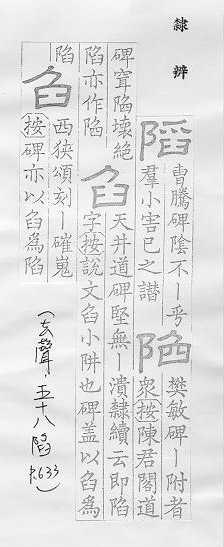 隸辨
陷 曹騰碑陰不丨乎
羣小害已之譖
陷 樊敏碑丨附者
衆按陳君閣道
碑窅陷壞絶
陷亦作陷
臽 天井道碑堅無丨潰隸續云即陷
字按説文臽小阱也碑盖以臽為
陷
臽 西狹頌刻丨磪嵬
按碑亦以臽為陷
(去聲·五十八陷 P.633)